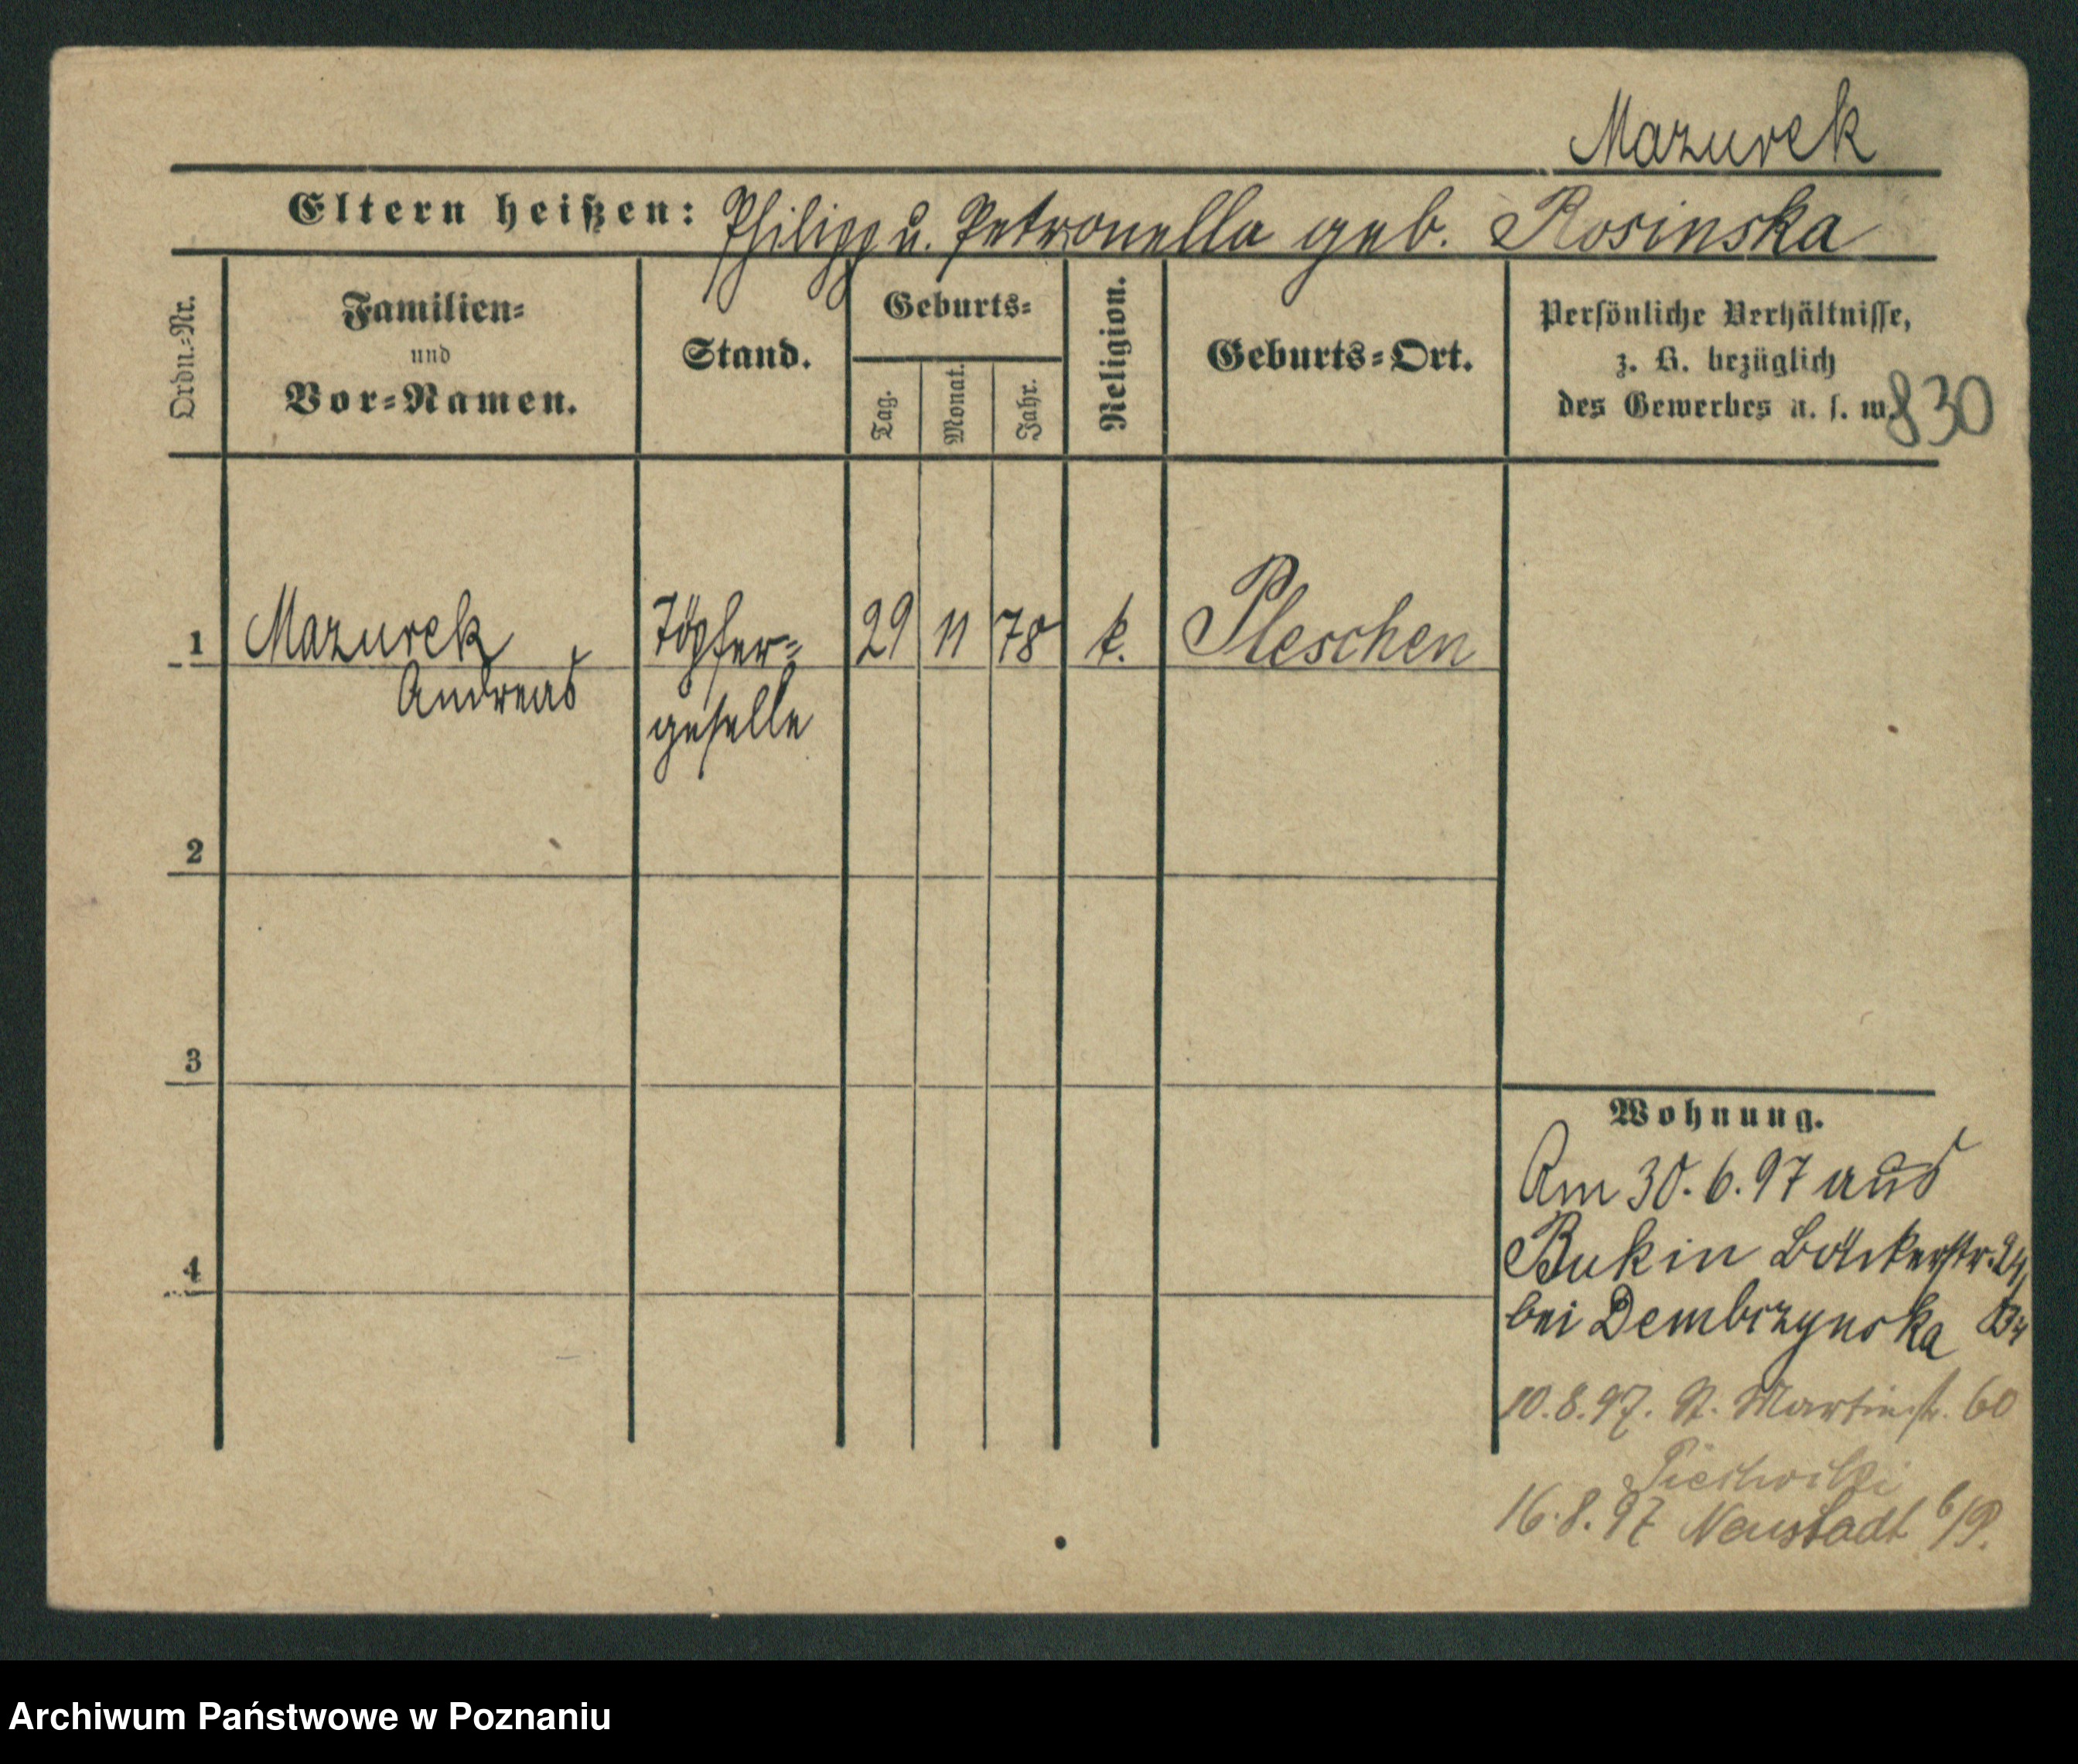 Mazurek
Eltern heißen: Philipp u. Petronella geb. Rosinska
Ordn.-Nr.
Familien-
und
Vor-Namen.
Stand.
Geburts-
Tag.
Monat.
Jahr.
Religion.
Geburts-Ort.
Persönliche Verhältnisse,
z. B. bezüglich
des Gewerbes u. s. w.
830
1 Mazurek Töpfer- 29 11 78 k. Pleschen
Andreas geselle
2
3
4
Wohnung.
Am 30.6.97 aus
Bukin Bäckerstr. 24
bei Dembczynska
10.8.97. St. Martinstr. 60
16.8.97 Neustadt
Archiwum Państwowe w Poznaniu